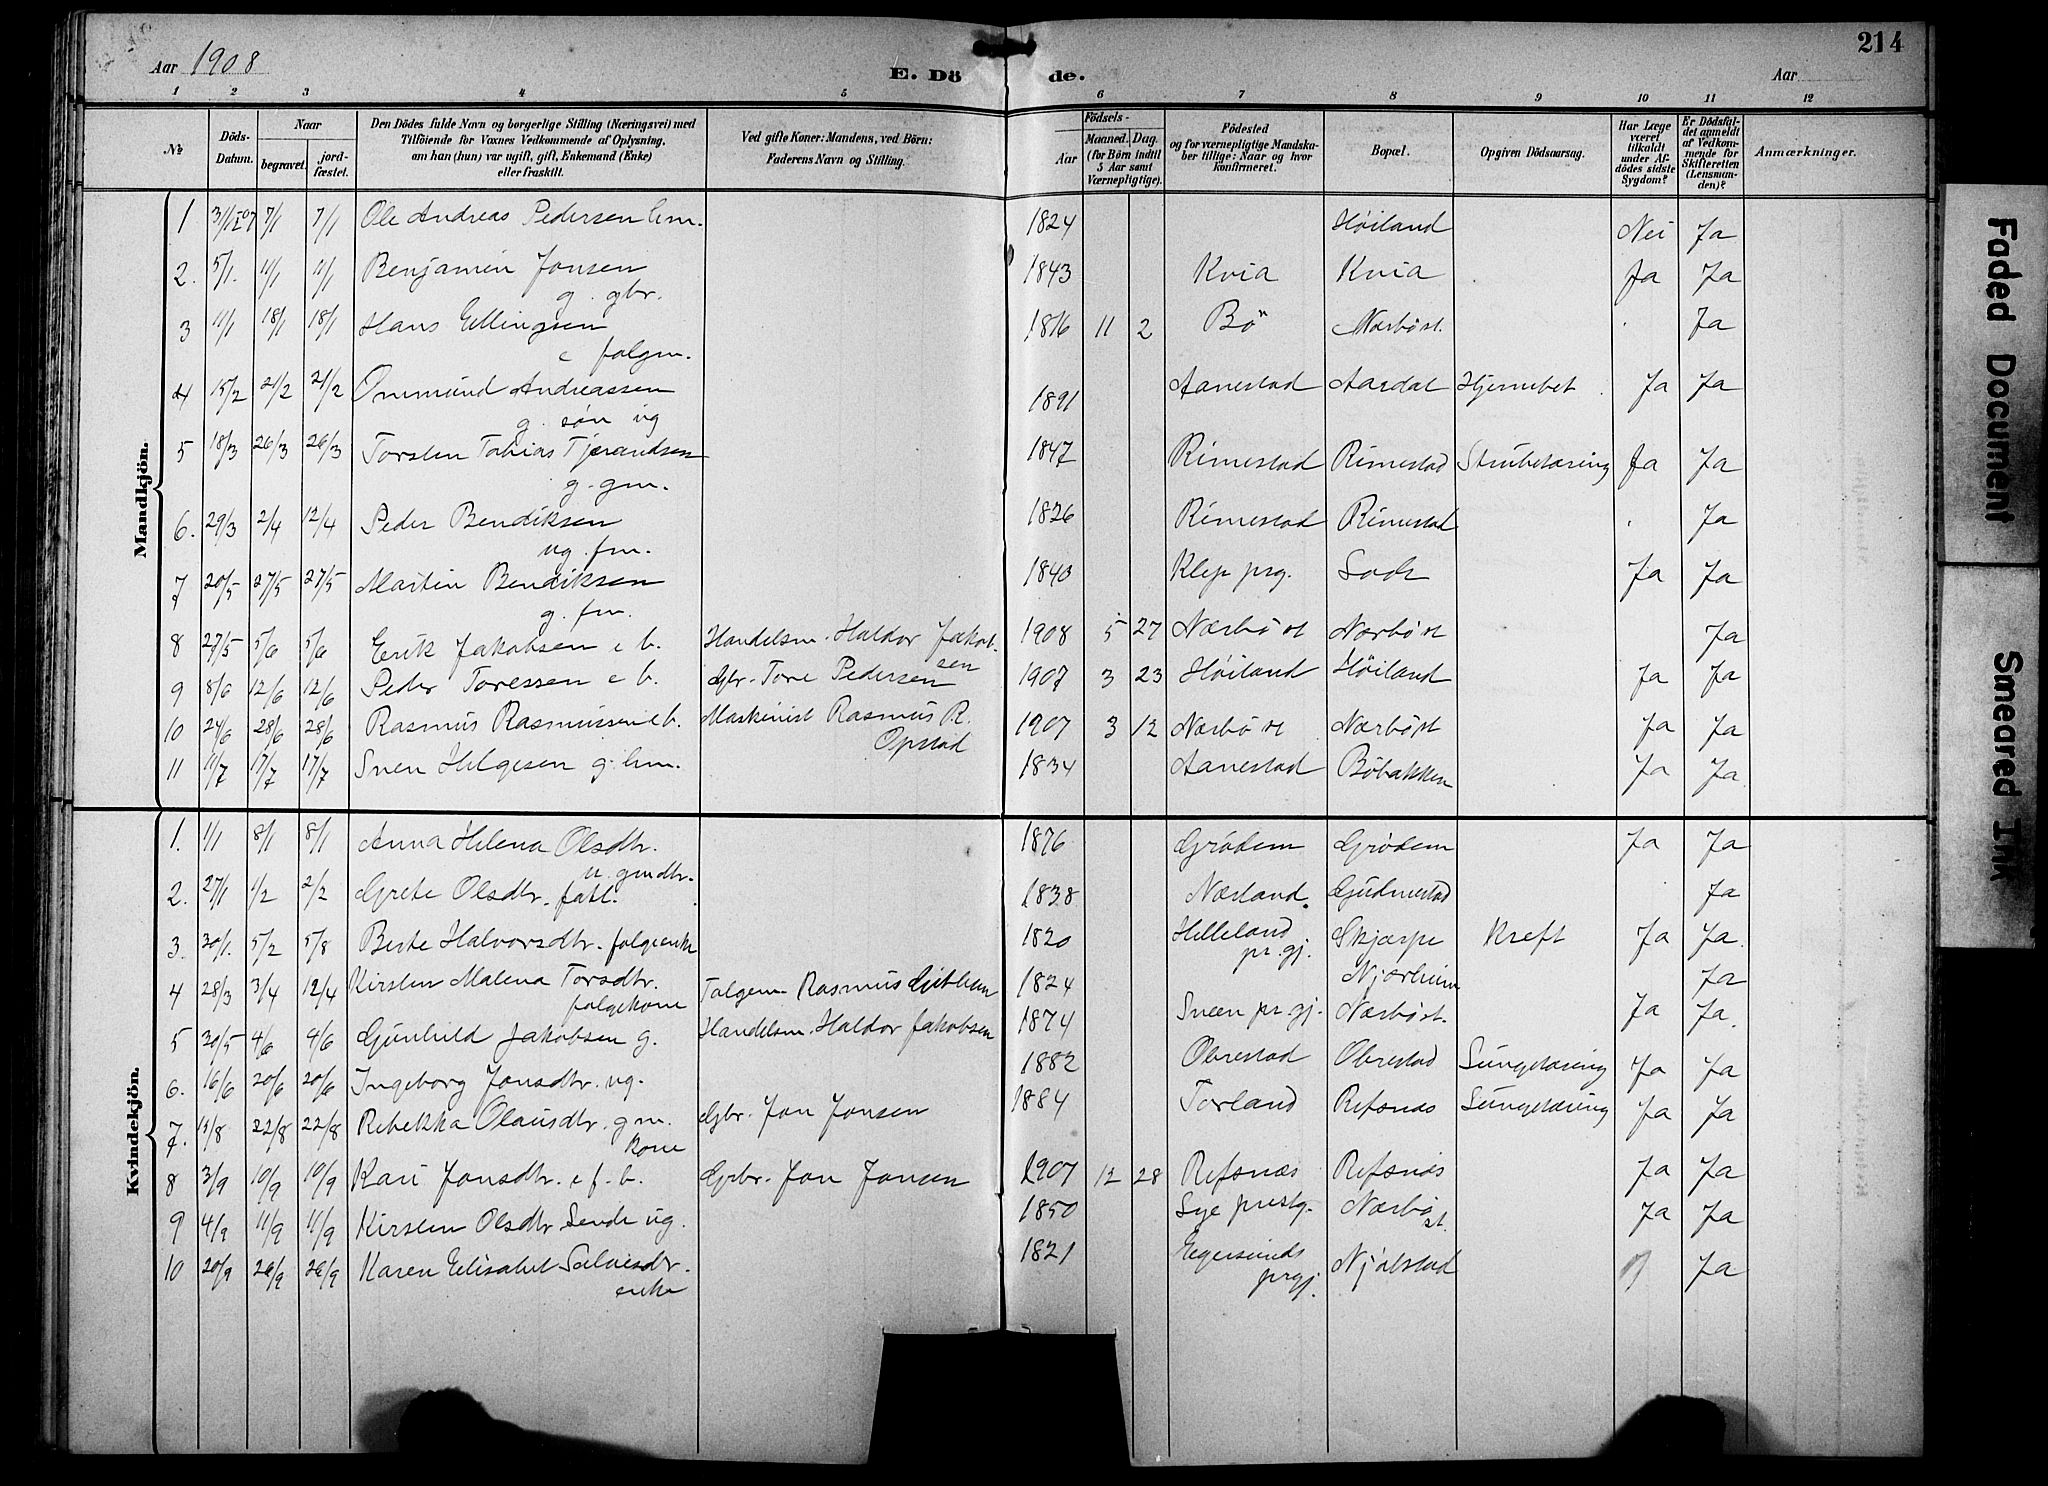 Aar 1908
E. Dö de.
Aar
214
1 2 3 4 5 6 7 8 9 10 11 12
№
Döds-Datum.
Naar
begravet.
jord-fæstet.
Den Dödes fulde Navn og borgerlige Stilling (Næringsvei) med
Tilföiende for Voxnes Vedkommende af Oplysning,
om han (hun) var ugift, gift, Enkemand (Enke)
eller fraskilt.
Ved gifte Koner: Mandens, ved Börn:
Faderens Navn og Stilling.
Födsels-
Aar
Maaned. Dag.
(for Börn indtil
5 Aar samt
Værnepligtige).
Födested
og for værnepligtige Mandska-
ber tillige: Naar og hvor
konfirmeret.
Bopæl.
Opgiven Dödsaarsag.
Har Læge
været
tilkaldt
under Af-
dödes sidste
Sygdom?
Er Dödsfal-
det anmeldt
af Vedkom-
mende for
Skifteretten
(Lensman-
den)?
Anmærkninger.
Mandkjön.
1 31/12 07 7/1 7/1 Ole Andreas Pedersen 1824 Höiland Nei Ja
2. 5/1. 11/1 11/1 Benjamin Jonsen 1843 Kvia Kvia Ja Ja
g. gbr.
3 11/1 18/1 18/1 Hans Ellingsen 1816 11 2 Bö Nærbö st. Ja
e folgm.
4 15/2 21/2 21/2 Ommund Andreassen 1891 Aanestad Aardal Ja Ja
g. søn ug
5 18/3 26/3 26/3 Torsten Tobias Tjerandsen 1847 Rimestad Rimestad Strubetæring Ja Ja
g. gm.
6. 29/3 2/4 12/4 Peder Bendiksen 1826 Rimestad Rimestad Ja
ug. fm.
7 20/5 27/5 27/5 Martin Bendiksen 1840 Klep prg. Ja Ja
g. fm.
8 27/5 5/6 5/6 Erik Jakobsen e b. Handelsm. Haldor Jakob-
sen 1908 5 27 Nærbö st Nærbö st Ja
9 8/6 12/6 12/6 Peder Toressen e b. Gbr. Tore Pedersen 1907 3 23 Höiland Höiland Ja Ja
10 24/6 28/6 28/6 Rasmus Rasmussen e b. Maskinist Rasmus R.
Opstad 1907 3 12 Nærbö st Nærbö st Ja Ja
11 11/7 17/7 17/7 Sven Helgesen g. 1834 Aanestad Böbakken Ja Ja
Kvindekjön.
1. 1/1 8/1 8/1 Anna Helena Olsdtr. 1876 Grödem Grödem Ja Ja
u. gmdtr.
2. 27/1 1/2 2/2 Grete Olsdtr. fatt. 1838 Nærland. Gudmestad Ja
3. 30/1. 5/2 5/8 Berte Halvorsdtr. folgeenke 1820 Helleland
pr. gj. Skjærpe Kreft Ja Ja.
4 28/3 3/4 12/4 Kirsten Malena Torsdtr.
folgekone Folgem. Rasmus 1824 Njærheim Ja
5 30/5 4/6 4/6 Gunhild Jakobsen g. Handelsm. Haldor Jakobsen 1874 Snæn pr. gj. Nærbö st. Ja Ja.
6. 16/6 20/6 20/6 Ingeborg Jonsdtr. ug. 1882 Obrestad Obrestad Lungetæring Ja Ja
7. 22/8 22/8 Rebekka Olausdtr. gm.
kone Gbr. Jon Jonsen 1884 Torland Refsnæs Lungetæring Ja Ja
8 3/9 10/9 10/9 Kari Jonsdtr. e f. b. Gbr. Jon Jonsen 1907 12 28 Refsnæs Refsnæs Ja Ja
9 4/9 11/9 11/9 Kirsten Olsdtr Sende ug. 1850 Lye prestg. Nærbö
st. Ja Ja
10 20/9 26/9 26/9 Karen Elisabet Salvesdtr.
enke 1821 Egersunds
prgj. Njölstad Ja
Faded Document
Smeared Ink